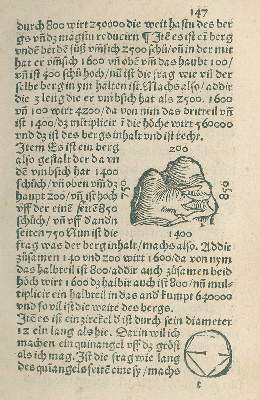 147
durch 800 wirt 250000 die weit hastu des ber
gs vñ dz magstu reducirn ¶ Itē es ist eī berg
vndē bei dē füß vmsich 2500 schü/vñ in der mit
hat er vmsich 1600 vñ obē vm̄ das haubt 100/
vñ ist 400 schü hoch/nu ist die frag wie vil der
selbe berg in ym halten ist. Machs also/addir
die 3 leng die er vmbsich hat als 2500. 1600
vñ 100 wirt 4200/da von nim das drittteil vñ
ist 1400/dz multiplicir ī die höche wirt 560000
vnd dz ist des bergs inhalt vnd ist recht.
Item Es ist ein berg
also gestalt der da vn
dē vmbsich hat 1400
schüch/vñ oben vm̄ dz
haupt 200/vñ ist hoch
vff der einē seitē 850
schüch/vñ vff d' andñ
seiten 750 Nun ist die
200
750
850
1400
frag was der berg inhalt/machs also. Addir
züsamen 1400 vnd 200 wirt 1600/da von nym
das halbteil ist 800/addir auch züsamen beid
höch wirt 1600 dz halbir auch ist 800/nū mul-
tiplicir ein halbteil in das and' kumpt 640000
vnd so vil ist die weite des bergs.
Itē es ist ein zirckel d' ist durch sein diameter
12 ein lang als hie. Darin wil ich
machen ein quinangel vff dz gröst
als ich mag. Ist die frag wie lang
des quīangels seitē eine sy/machs
t